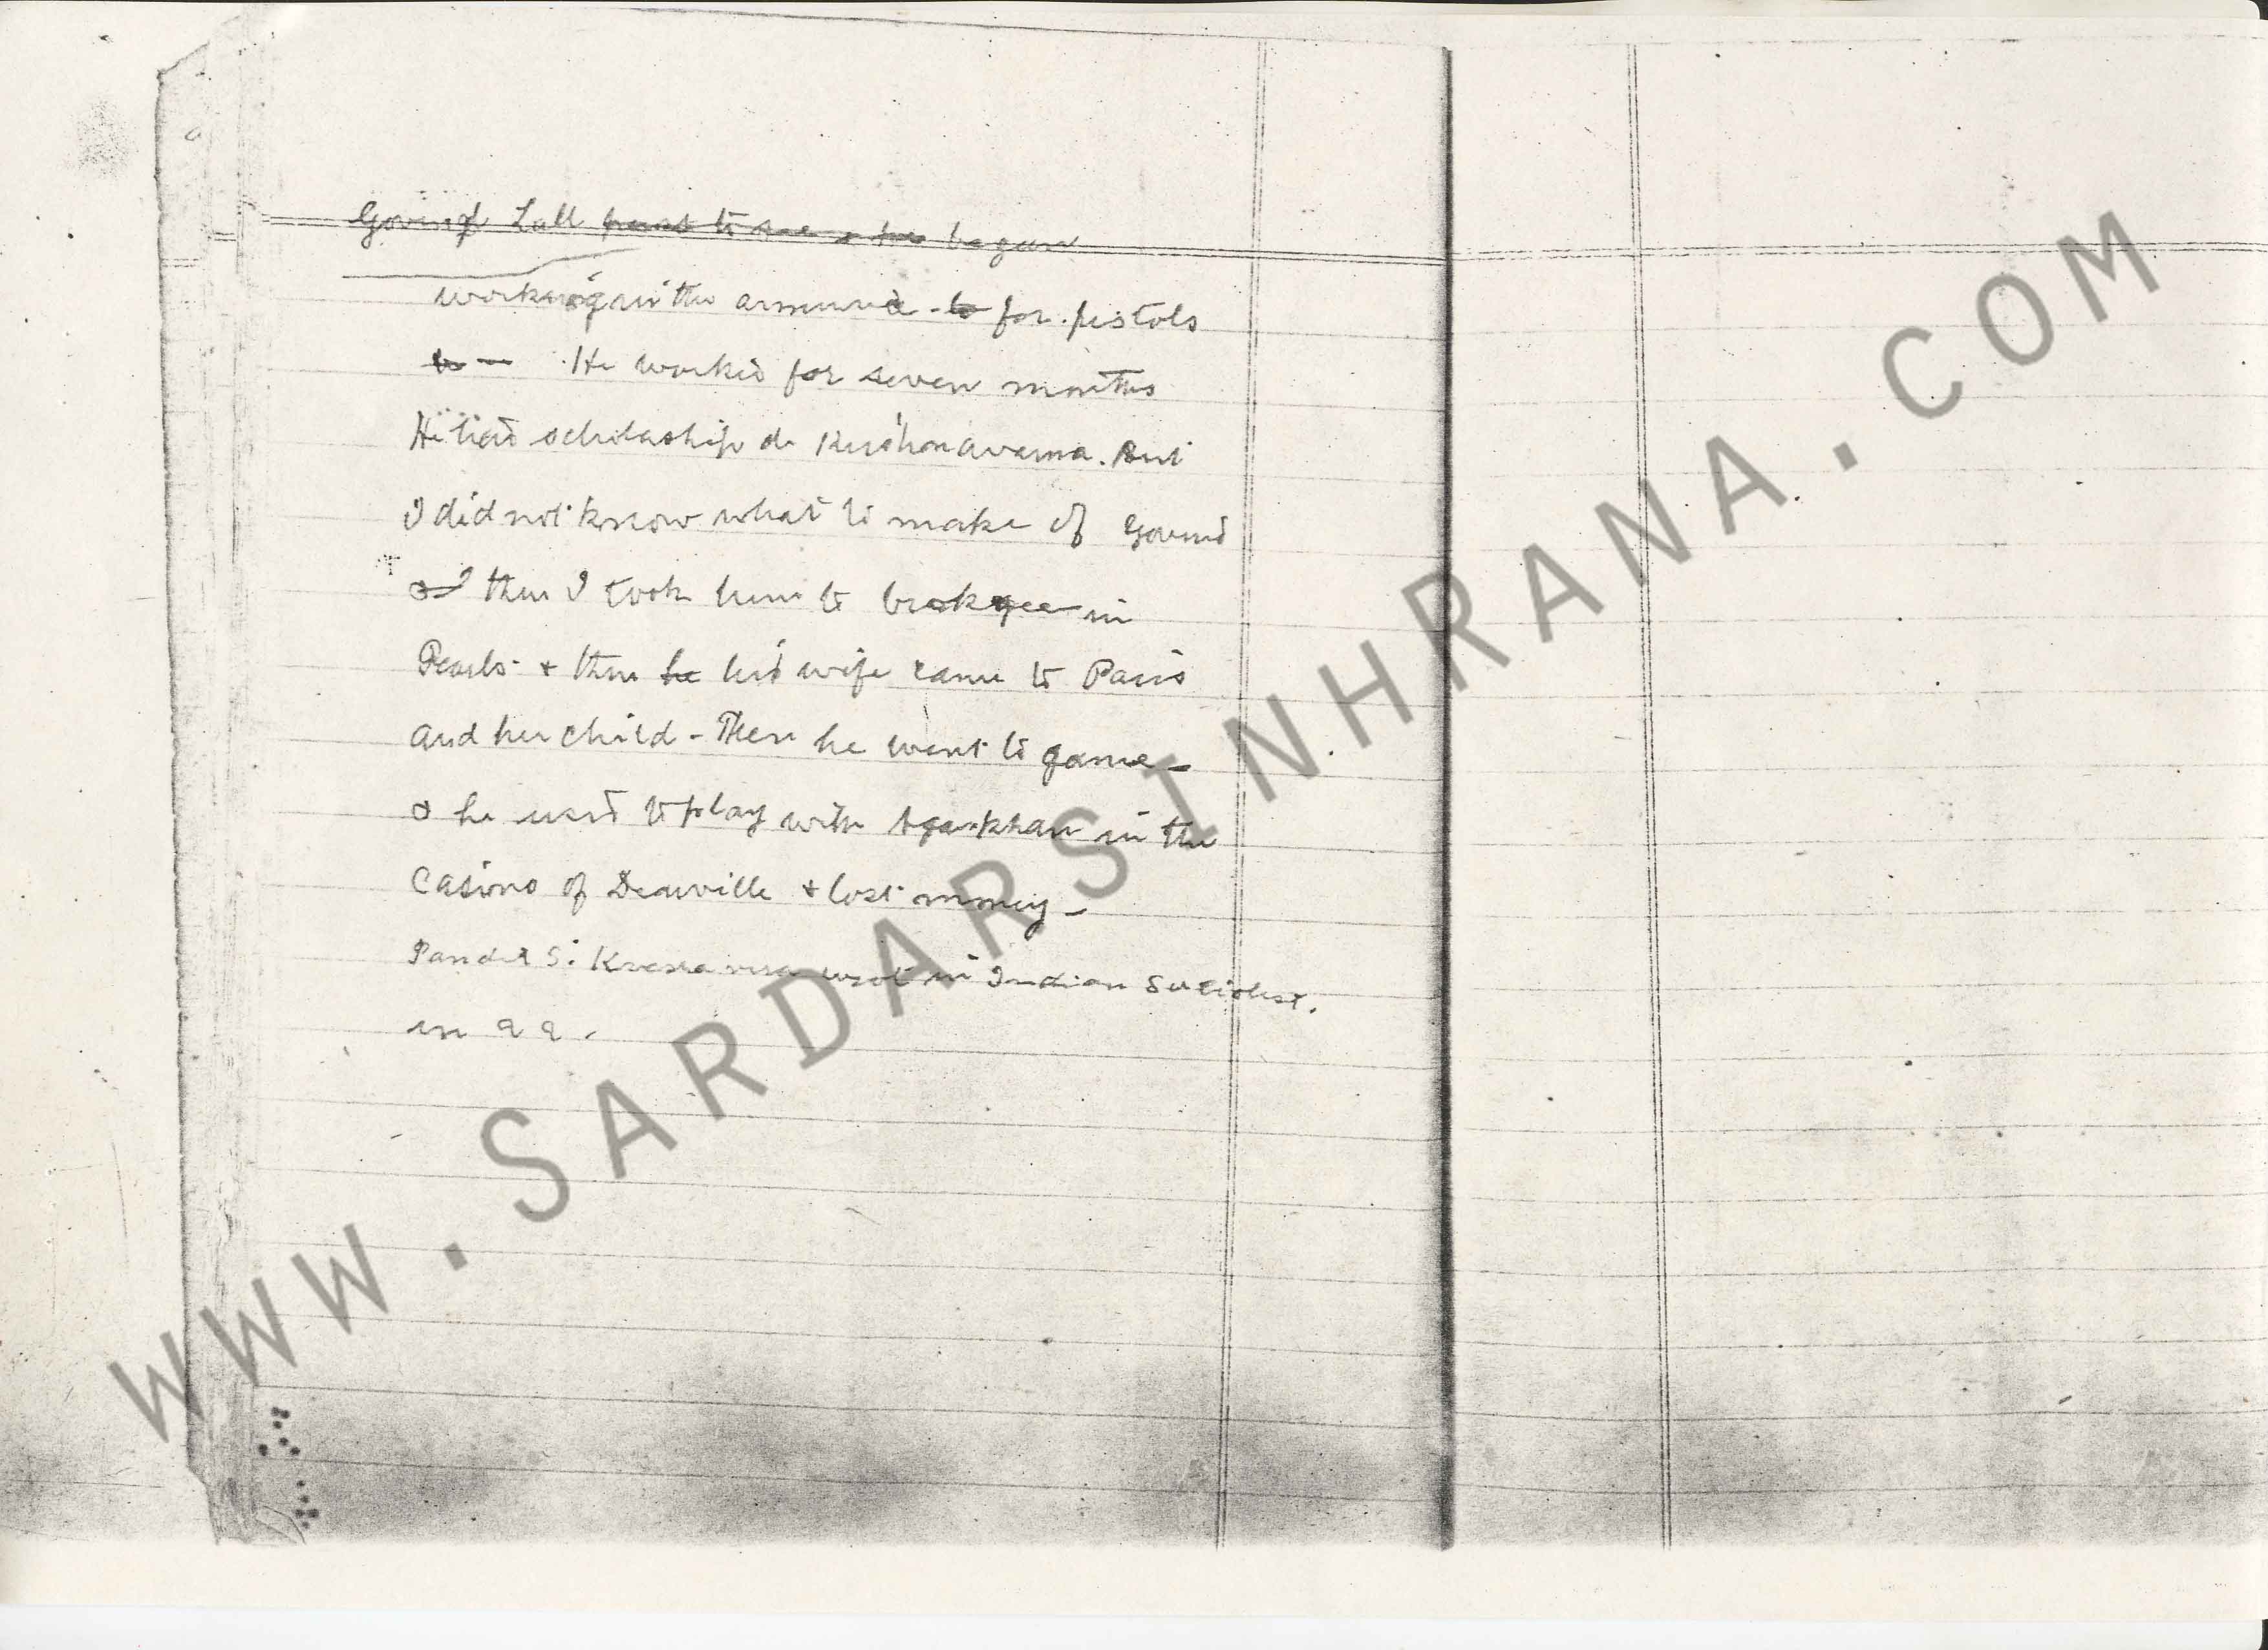 Govind Lall began
working in the for pistols
He worked for seven months
He had scholaship de Krishnavarma. But
I did not know what to make of Govind
& then I took him to in
Pearls + then he his wife came to Paris
and her child - Then he went to game -
& he used to play with Agakhan in the
Casino of Deauville + lost money -
Pandit S: wrot in Indian Socialist.
in
WWW.SARDARSINHRANA.COM